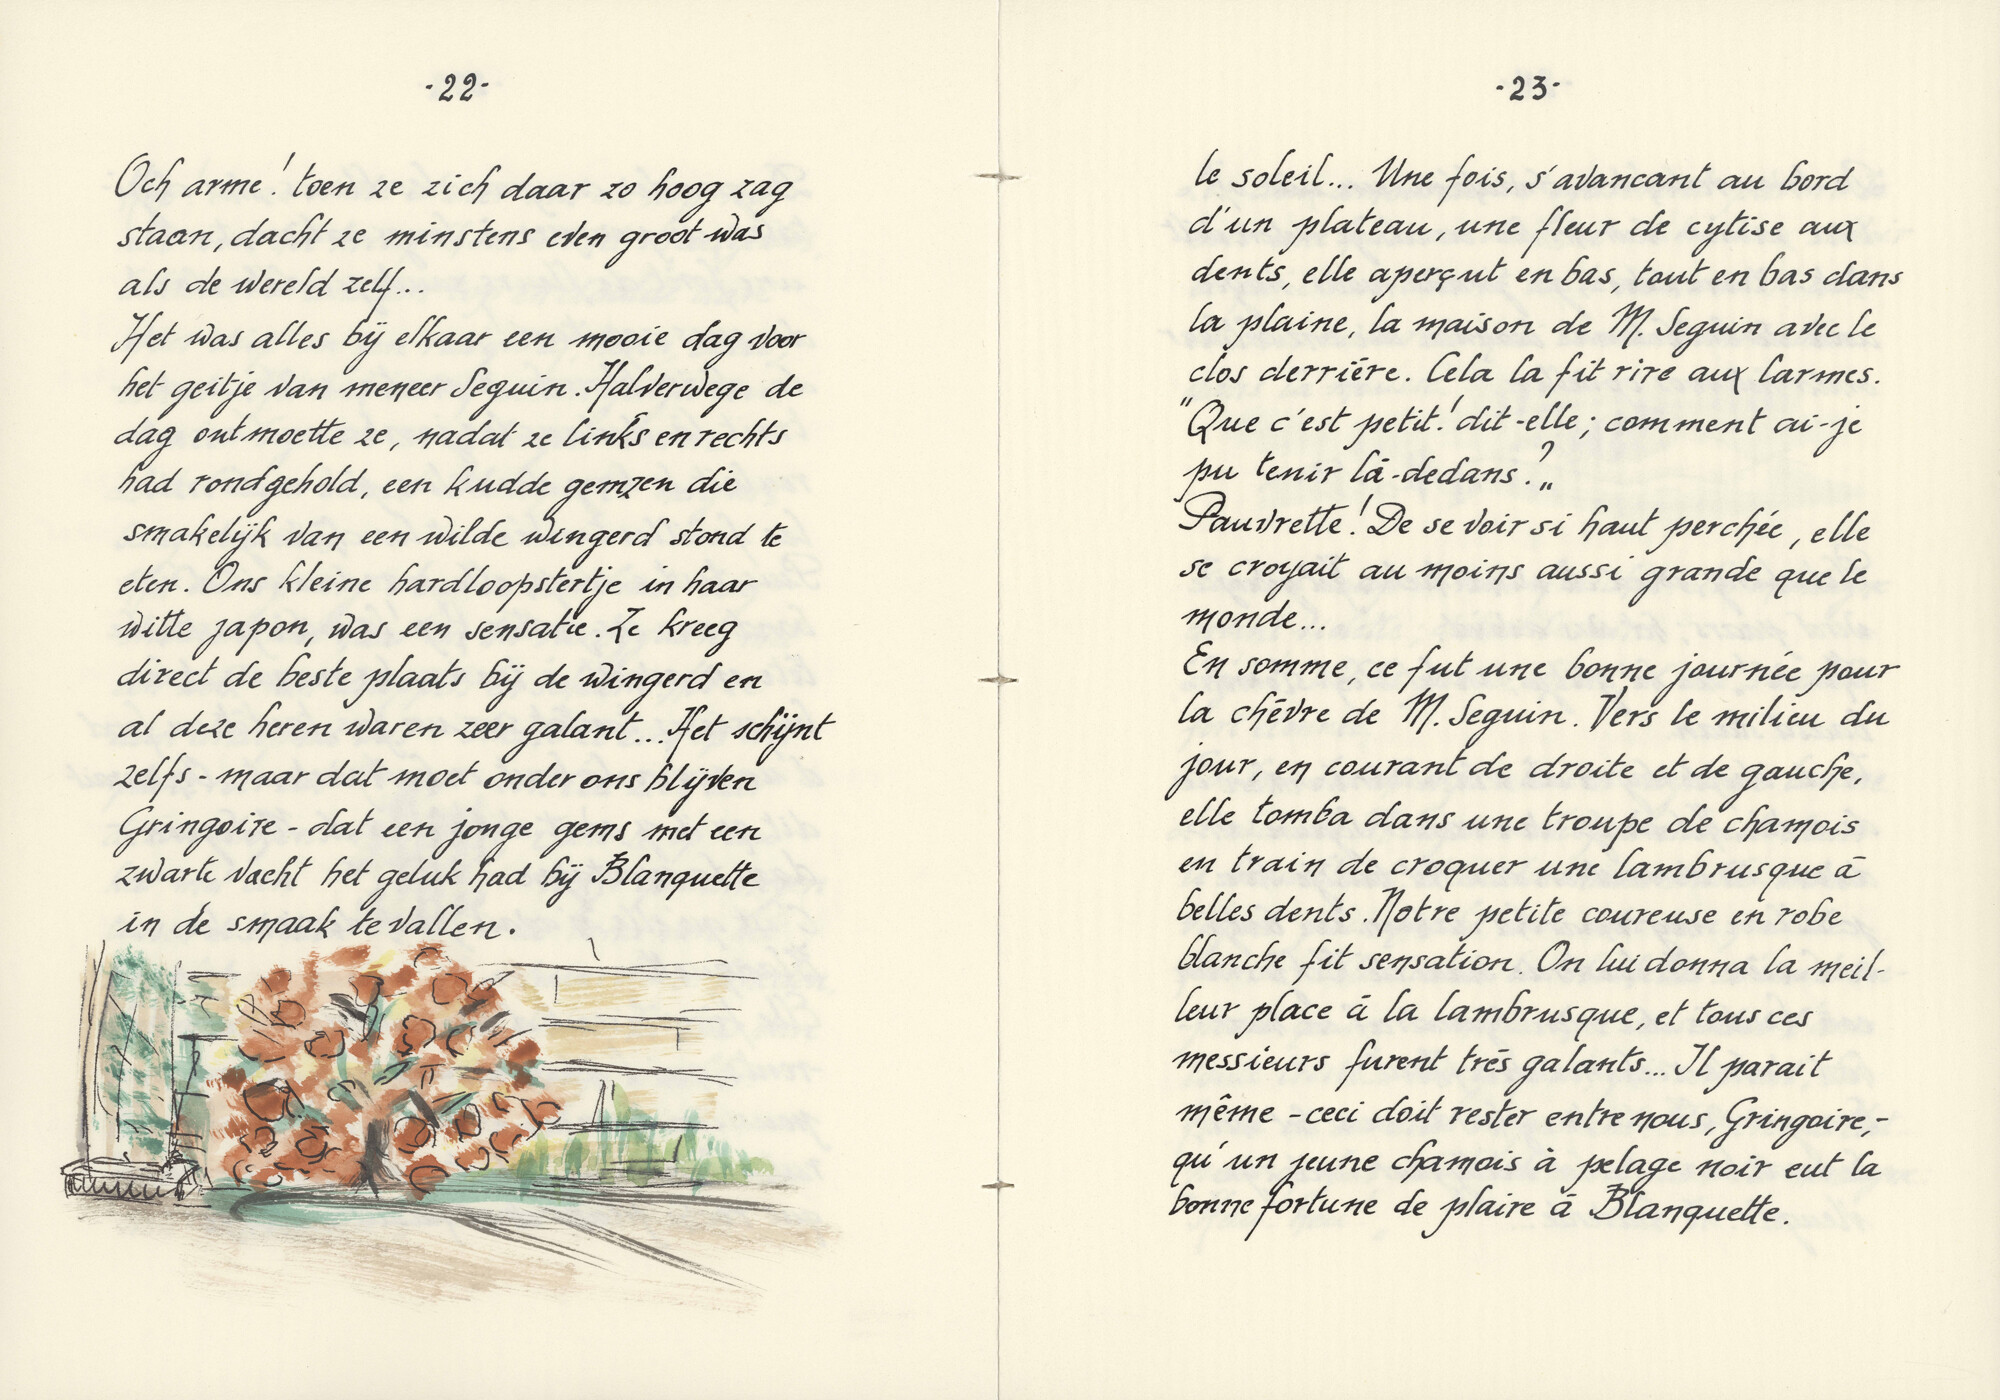 -22-
Och arme! toen ze zich daar zo hoog zag
staan, dacht ze minstens even groot was
als de wereld zelf...
Het was alles bij elkaar een mooie dag voor
het geitje van meneer Seguin. Halverwege de
dag ontmoette ze, nadat ze links en rechts
had rondgehold, een kudde gemzen die
smakelijk van een wilde wingerd stond te
eten. Ons kleine hardloopstertje in haar
witte japon, was een sensatie. Ze kreeg
direct de beste plaats bij de wingerd en
al deze heren waren zeer galant... Het schijnt
zelfs - maar dat moet onder ons blijven
Gringoire - dat een jonge gems met een
zwarte vacht het geluk had bij Blanquette
in de smaak te vallen.
-23-
le soleil... Une fois, s'avancant au bord
d'un plateau, une fleur de cytise aux
dents, elle aperçut en bas, tout en bas dans
la plaine, la maison de M. Seguin avec le
clos derrière. Cela la fit rire aux larmes.
"Que c'est petit! dit-elle; comment ai-je
pu tenir là-dedans?„
Pauvrette! De se voir si haut perchée, elle
se croyait au moins aussi grande que le
monde...
En somme, ce fut une bonne journée pour
la chèvre de M. Seguin. Vers le milieu du
jour, en courant de droite et de gauche,
elle tomba dans une troupe de chamois
en train de croquer une lambrusque à
belles dents. Notre petite coureuse en robe
blanche fit sensation. On lui donna la meil-
leur place à la lambrusque, et tous ces
messieurs furent très galants... Il parait
même - ceci doit rester entre nous, Gringoire,-
qu'un jeune chamois à pelage noir eut la
bonne fortune de plaire à Blanquette.